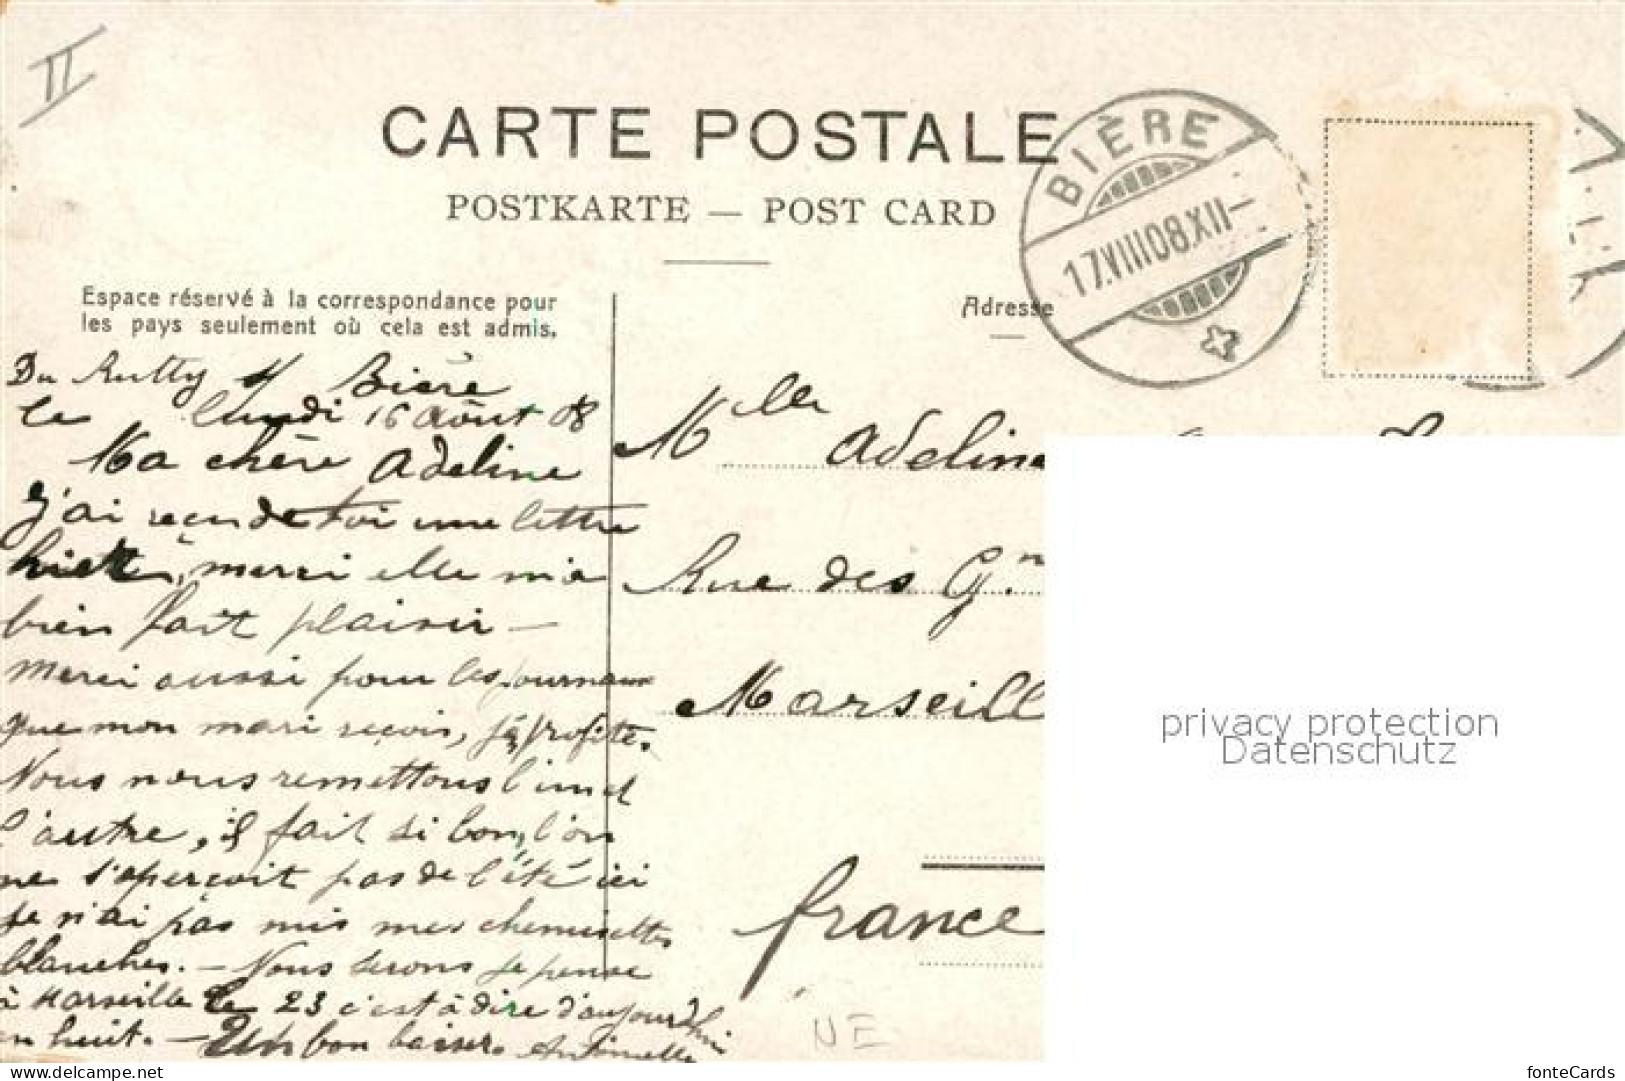 II
CARTE POSTALE
POSTKARTE — POST CARD
BIÈRE
17.VIII08.XII—
Espace réservé à la correspondance pour
les pays seulement où cela est admis.
Adresse
Du Rutty s/ Bière
le lundi 16 Août 08
Ma chère Adeline
J'ai reçu de toi une lettre
hier, merci elle m'a
bien fait plaisir —
Merci aussi pour les journaux
que mon mari reçois, j'en profite.
Nous nous remettons l'un et
l'autre, il fait si bon, l'on
ne s'aperçoit pas de l'été ici
Je n'ai pas mis mes chemisettes
blanches. — Nous serons je pense
à Marseille le 23 c'est à dire d'aujourd'hui
en huit. — Un bon baiser. Antoinette
Mlle Adeline
Rue des Gn
Marseill
france
NE
privacy protection
Datenschutz
www.delcampe.net
fonteCards